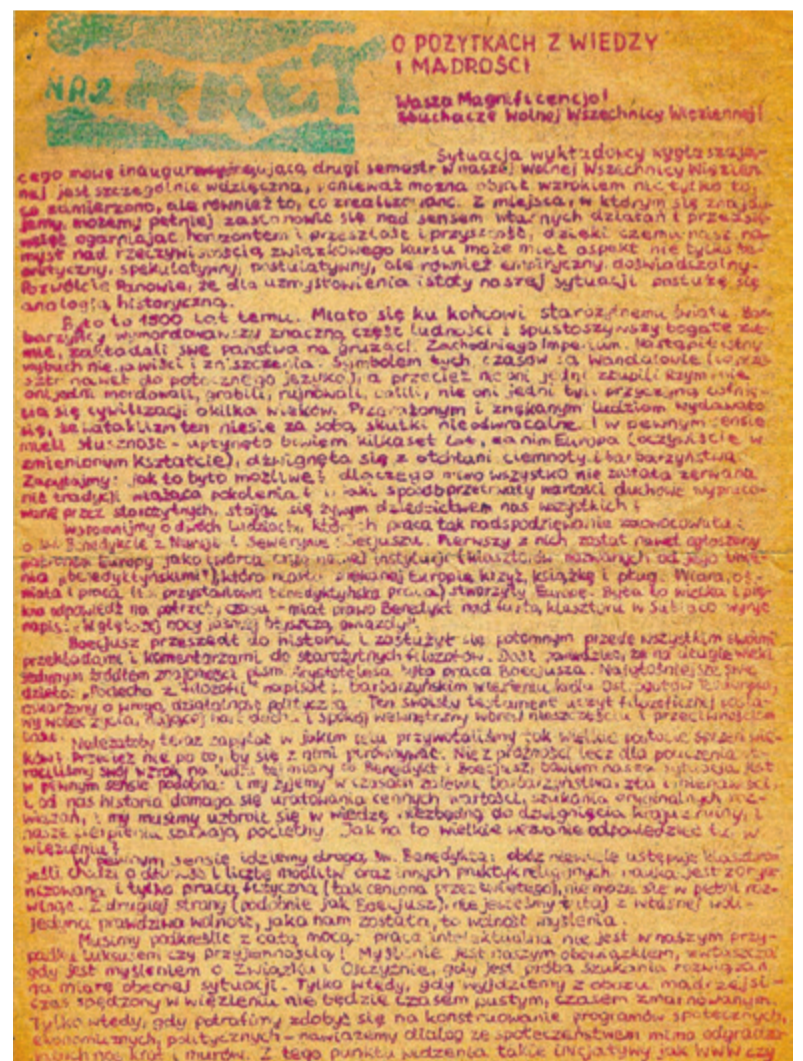 NR 2 KRET
O POŻYTKACH Z WIEDZY
I MĄDROŚCI
Wasza Magnificencjo!
Słuchacze Wolnej Wszechnicy Więziennej!
Sytuacja wykładowcy wygłaszają-
cego mowę inaugurującą drugi semestr w naszej Wolnej Wszechnicy Więzien
nej jest szczególnie wdzięczna, ponieważ można objąć wzrokiem nie tylko to,
co zamierzono, ale również to, co zrealizowano. Z miejsca, w którym się znajdu
jemy, możemy pełniej zastanowić się nad sensem własnych działań i przedsię
wzięć ogarniając horyzontem i przeszłość i przyszłość, dzięki czemu nasz na
mysł nad rzeczywistością związkowego kursu może mieć aspekt nie tylko te
oretyczny, spekulatywny, postulatywny, ale również empiryczny, doświadczalny.
Pozwólcie Panowie, że dla uzmysłowienia istoty naszej sytuacji posłużę się
analogią historyczną.
Było to 1500 lat temu. Miało się ku końcowi starożytnemu światu. Bar
barzyńcy wymordowawszy znaczną część ludności i spustoszywszy bogate zie
mie, zakładali swe państwa na gruzach Zachodniego Imperium. Nastąpił istny
wybuch nienawiści i zniszczenia. Symbolem tych czasów są Wandalowie
nawet do potocznego języka), a przecież nie oni jedni złupili Rzym, nie
oni jedni mordowali, grabili, rujnowali, palili, nie oni jedni byli przyczyną cofnię
cia się cywilizacji o kilka wieków. Przerażonym i znękanym ludziom wydawało
się, że kataklizm ten niesie za sobą skutki nieodwracalne. I w pewnym sensie
mieli słuszność - upłynęło bowiem kilkaset lat, zanim Europa (oczywiście w
zmienionym kształcie), dźwignęła się z otchłani ciemnoty i barbarzyństwa.
Zapytajmy: jak to było możliwe? dlaczego mimo wszystko nie została zerwana
nić tradycji wiążąca pokolenia i w jaki sposób przetrwały wartości duchowe wypraco-
wane przez starożytnych, stając się żywym dziedzictwem nas wszystkich?
Wspomnijmy o dwóch ludziach, których praca tak nadspodziewanie zaowocowała:
o św. Benedykcie z Nursji i Sewerynie Boecjuszu. Pierwszy z nich został nawet ogłoszony
patronem Europy jako twórca nowej instytucji (klasztorów nazwanych od jego imie-
nia „benedyktyńskimi"), która niosła nękanej Europie krzyż, książkę i pług. Wiara, oś-
wiata i praca przysłowiowa benedyktyńska praca) stworzyły Europę. Była to wielka i pię-
kna odpowiedź na potrzeby czasu - miał prawo Benedykt nad furtą klasztoru w Subiaco wyryć
napis: „W głębszej nocy jaśniej błyszczą gwiazdy".
Boecjusz przeszedł do historii i zasłużył się potomnym przede wszystkim swoimi
przekładami i komentarzami do starożytnych filozofów. Dość powiedzieć, że na długie wieki
jedynym źródłem znajomości pism Arystotelesa była praca Boecjusza. Najgłośniejsze swe
dzieło: „Pociecha z filozofii" napisał w barbarzyńskim więzieniu
oskarżony o wrogą działalność polityczną. Ten swoisty testament uczył filozoficznej posta
wy wobec życia, dającej hart ducha i spokój wewnętrzny wbrew nieszczęściu i przeciwnościom
losu.
Należałoby teraz zapytać w jakim celu przywołaliśmy tak wielkie postacie sprzed wie-
ków? Przecież nie po to, by się z nimi porównywać. Nie z próżności lecz dla pouczenia zw-
róciliśmy swój wzrok na ludzi tej miary co Benedykt i Boecjusz, bowiem nasza sytuacja jest
w pewnym sensie podobna: i my żyjemy w czasach zalewu barbarzyństwa, zła i nienawiści,
i od nas historia domaga się uratowania cennych wartości, szukania oryginalnych roz-
wiązań, i my musimy uzbroić się w wiedzę niezbędną do dźwignięcia kraju z ruiny, i
nasze cierpienia szukają pociechy. Jak na to wielkie wezwanie odpowiedzieć tu, w
więzieniu?
W pewnym sensie idziemy drogą św. Benedykta: obóz niewiele ustępuje klasztorowi
jeśli chodzi o i liczbę modlitw oraz innych praktyk religijnych, nauka jest zorga
nizowana i tylko praca fizyczna (tak ceniona przez świętego), nie może się w pełni roz-
winąć. Z drugiej strony (podobnie jak Boecjusz), nie jesteśmy tutaj z własnej woli -
jedyna prawdziwa wolność, jaka nam została, to wolność myślenia.
Musimy podkreślić z całą mocą: praca intelektualna nie jest w naszym przy-
padku luksusem czy przyjemnością! Myślenie jest naszym obowiązkiem, zwłaszcza
gdy jest myśleniem o Związku i Ojczyźnie, gdy jest próbą szukania rozwiązań
na miarę obecnej sytuacji. Tylko wtedy, gdy wyjdziemy z obozu mądrzejsi -
czas spędzony w więzieniu nie będzie czasem pustym, czasem zmarnowanym.
Tylko wtedy, gdy potrafimy zdobyć się na konstruowanie programów społecznych,
ekonomicznych, politycznych - nawiążemy dialog ze społeczeństwem mimo odgradza-
jących nas krat i murów. Z tego punktu widzenia takie inicjatywy jak czy